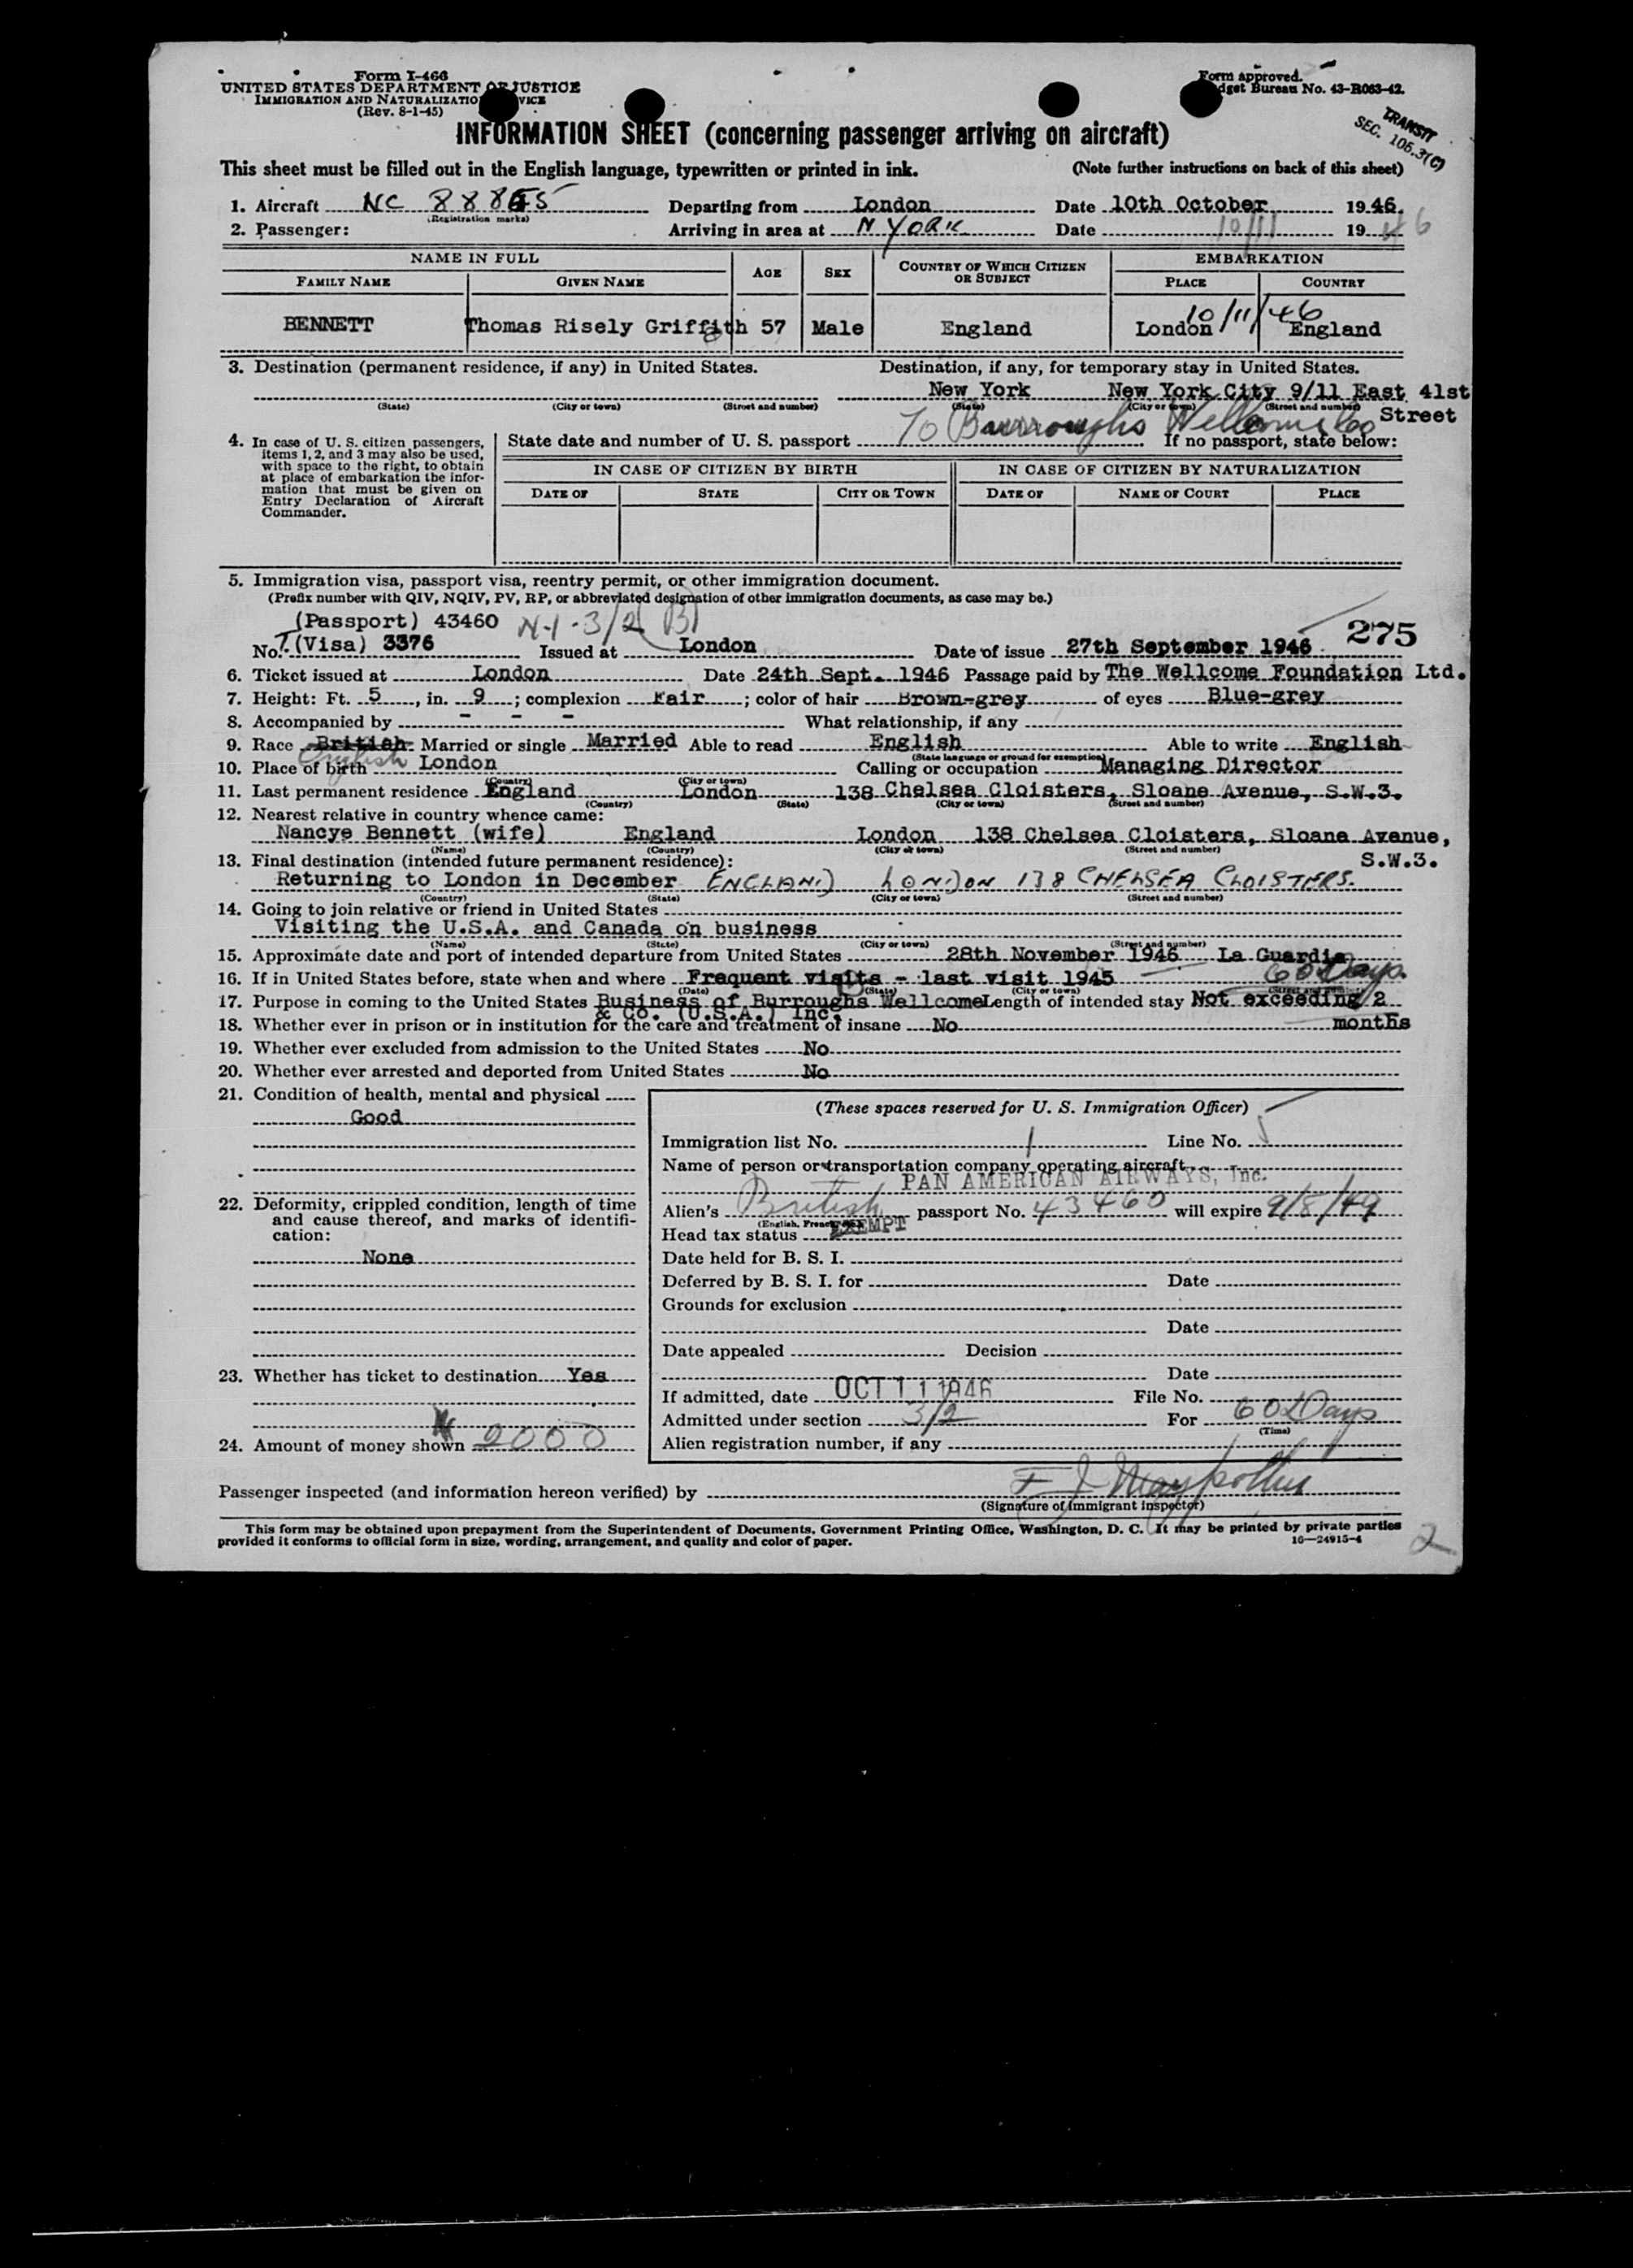 Form I-466
UNITED STATES DEPARTMENT OF JUSTICE
IMMIGRATION AND NATURALIZATIO VICE
(Rev. 8-1-45)
Form approved.
dget Bureau No. 43-R063-42.
TRANSIT
SEC. 105.3(C)
INFORMATION SHEET (concerning passenger arriving on aircraft)
This sheet must be filled out in the English language, typewritten or printed in ink. (Note further instructions on back of this sheet)
1. Aircraft NC Departing from London Date 10th October 1946.
(Registration marks)
2. Passenger: Arriving in area at N YORK Date 10/11 1946
NAME IN FULL AGE SEX COUNTRY OF WHICH CITIZEN OR SUBJECT EMBARKATION
FAMILY NAME GIVEN NAME PLACE COUNTRY
10/11/46
BENNETT Thomas Risely Griffith 57 Male England London England
3. Destination (permanent residence, if any) in United States. Destination, if any, for temporary stay in United States.
New York New York City 9/11 East 41st
(State) (City or town) (Street and number) (State) (City or town) (Street and number) Street
To Burroughs Wellcome & Co
4. In case of U. S. citizen passengers, items 1, 2, and 3 may also be used, with space to the right, to obtain at place of embarkation the information that must be given on Entry Declaration of Aircraft Commander.
State date and number of U. S. passport If no passport, state below:
IN CASE OF CITIZEN BY BIRTH IN CASE OF CITIZEN BY NATURALIZATION
DATE OF STATE CITY OR TOWN DATE OF NAME OF COURT PLACE
5. Immigration visa, passport visa, reentry permit, or other immigration document.
(Prefix number with QIV, NQIV, PV, RP, or abbreviated designation of other immigration documents, as case may be.)
(Passport) 43460 3/2 (B) 275
No. (Visa) 3376 Issued at London Date of issue 27th September 1946
6. Ticket issued at London Date 24th Sept. 1946 Passage paid by The Wellcome Foundation Ltd.
7. Height: Ft. 5, in. 9; complexion Fair; color of hair Brown-grey of eyes Blue-grey
8. Accompanied by - - - What relationship, if any
9. Race British Married or single Married Able to read English Able to write English
English (State language or ground for exemption)
10. Place of birth London Calling or occupation Managing Director
(Country) (City or town)
11. Last permanent residence England London 138 Chelsea Cloisters, Sloane Avenue, S.W.3.
(Country) (State) (City or town) (Street and number)
12. Nearest relative in country whence came:
Nancye Bennett (wife) England London 138 Chelsea Cloisters, Sloane Avenue,
(Name) (Country) (City or town) (Street and number)
13. Final destination (intended future permanent residence): S.W.3.
Returning to London in December ENGLAND LONDON 138 CHELSEA CLOISTERS.
(Country) (State) (City or town) (Street and number)
14. Going to join relative or friend in United States
Visiting the U.S.A. and Canada on business
(Name) (State) (City or town) (Street and number)
15. Approximate date and port of intended departure from United States 28th November 1946 La Guardia
16. If in United States before, state when and where Frequent visits - last visit 1945 60 Days
(Date) (State) (City or town) (Street and number)
17. Purpose in coming to the United States Business of Burroughs Wellcome Length of intended stay Not exceeding 2
& Co. (U.S.A.) Inc. months
18. Whether ever in prison or in institution for the care and treatment of insane No
19. Whether ever excluded from admission to the United States No
20. Whether ever arrested and deported from United States No
21. Condition of health, mental and physical
Good
22. Deformity, crippled condition, length of time and cause thereof, and marks of identification:
None
23. Whether has ticket to destination Yes
24. Amount of money shown 2000
(These spaces reserved for U. S. Immigration Officer)
Immigration list No. 1 Line No.
Name of person or transportation company operating aircraft
PAN AMERICAN AIRWAYS, Inc.
Alien's British passport No. 43460 will expire 9/8/49
Head tax status EXEMPT
Date held for B. S. I.
Deferred by B. S. I. for Date
Grounds for exclusion
Date
Date appealed Decision
Date
If admitted, date OCT 11 1946 File No.
Admitted under section 3/2 For 60 Days
(Time)
Alien registration number, if any
Passenger inspected (and information hereon verified) by
(Signature of immigrant inspector)
This form may be obtained upon prepayment from the Superintendent of Documents, Government Printing Office, Washington, D. C. It may be printed by private parties
provided it conforms to official form in size, wording, arrangement, and quality and color of paper. 16—24915-4
2